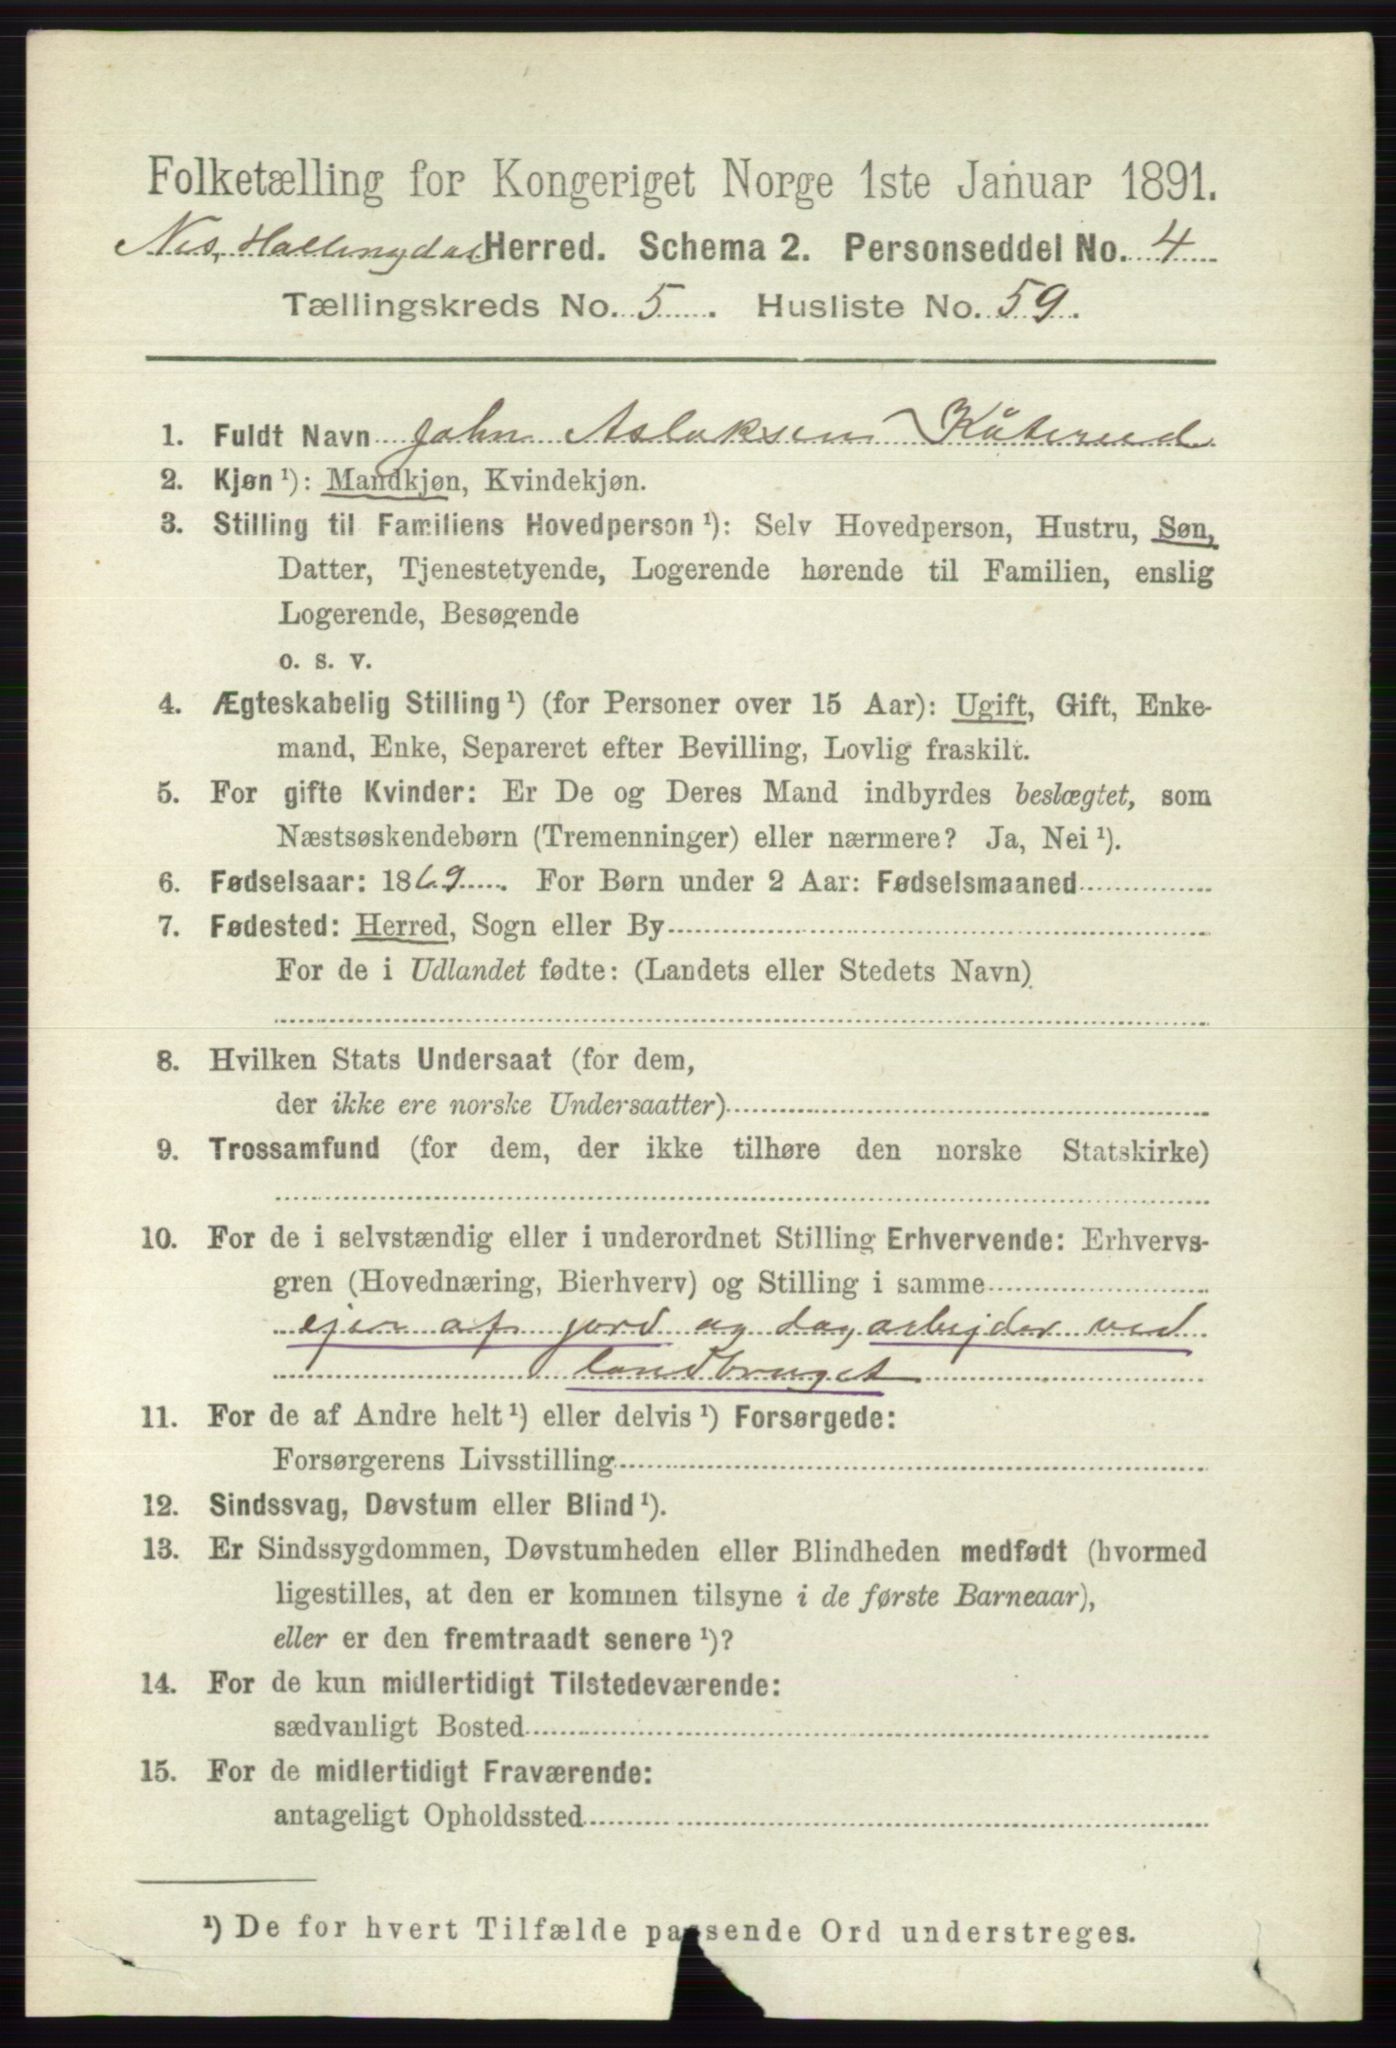 Folketælling for Kongeriget Norge 1ste Januar 1891.
Nes, Hallingdal Herred. Schema 2. Personseddel No. 4
Tællingskreds No. 5. Husliste No. 59.
1. Fuldt Navn John Aslaksen Kåterud
2. Kjøn ¹): Mandkjøn, Kvindekjøn.
3. Stilling til Familiens Hovedperson ¹): Selv Hovedperson, Hustru, Søn,
Datter, Tjenestetyende, Logerende hørende til Familien, enslig
Logerende, Besøgende
o. s. v.
4. Ægteskabelig Stilling ¹) (for Personer over 15 Aar): Ugift, Gift, Enke-
mand, Enke, Separeret efter Bevilling, Lovlig fraskilt.
5. For gifte Kvinder: Er De og Deres Mand indbyrdes beslægtet, som
Næstsøskendebørn (Tremenninger) eller nærmere? Ja, Nei ¹).
6. Fødselsaar: 1869. For Børn under 2 Aar: Fødselsmaaned
7. Fødested: Herred, Sogn eller By
For de i Udlandet fødte: (Landets eller Stedets Navn)
8. Hvilken Stats Undersaat (for dem,
der ikke ere norske Undersaatter)
9. Trossamfund (for dem, der ikke tilhøre den norske Statskirke)
10. For de i selvstændig eller i underordnet Stilling Erhvervende: Erhvervs-
gren (Hovednæring, Bierhverv) og Stilling i samme
ejer af jord og dagarbejder ved
landbruget
11. For de af Andre helt ¹) eller delvis ¹) Forsørgede:
Forsørgerens Livsstilling
12. Sindssvag, Døvstum eller Blind ¹).
13. Er Sindssygdommen, Døvstumheden eller Blindheden medfødt (hvormed
ligestilles, at den er kommen tilsyne i de første Barneaar),
eller er den fremtraadt senere ¹)?
14. For de kun midlertidigt Tilstedeværende:
sædvanligt Bosted
15. For de midlertidigt Fraværende:
antageligt Opholdssted
¹) De for hvert Tilfælde passende Ord understreges.